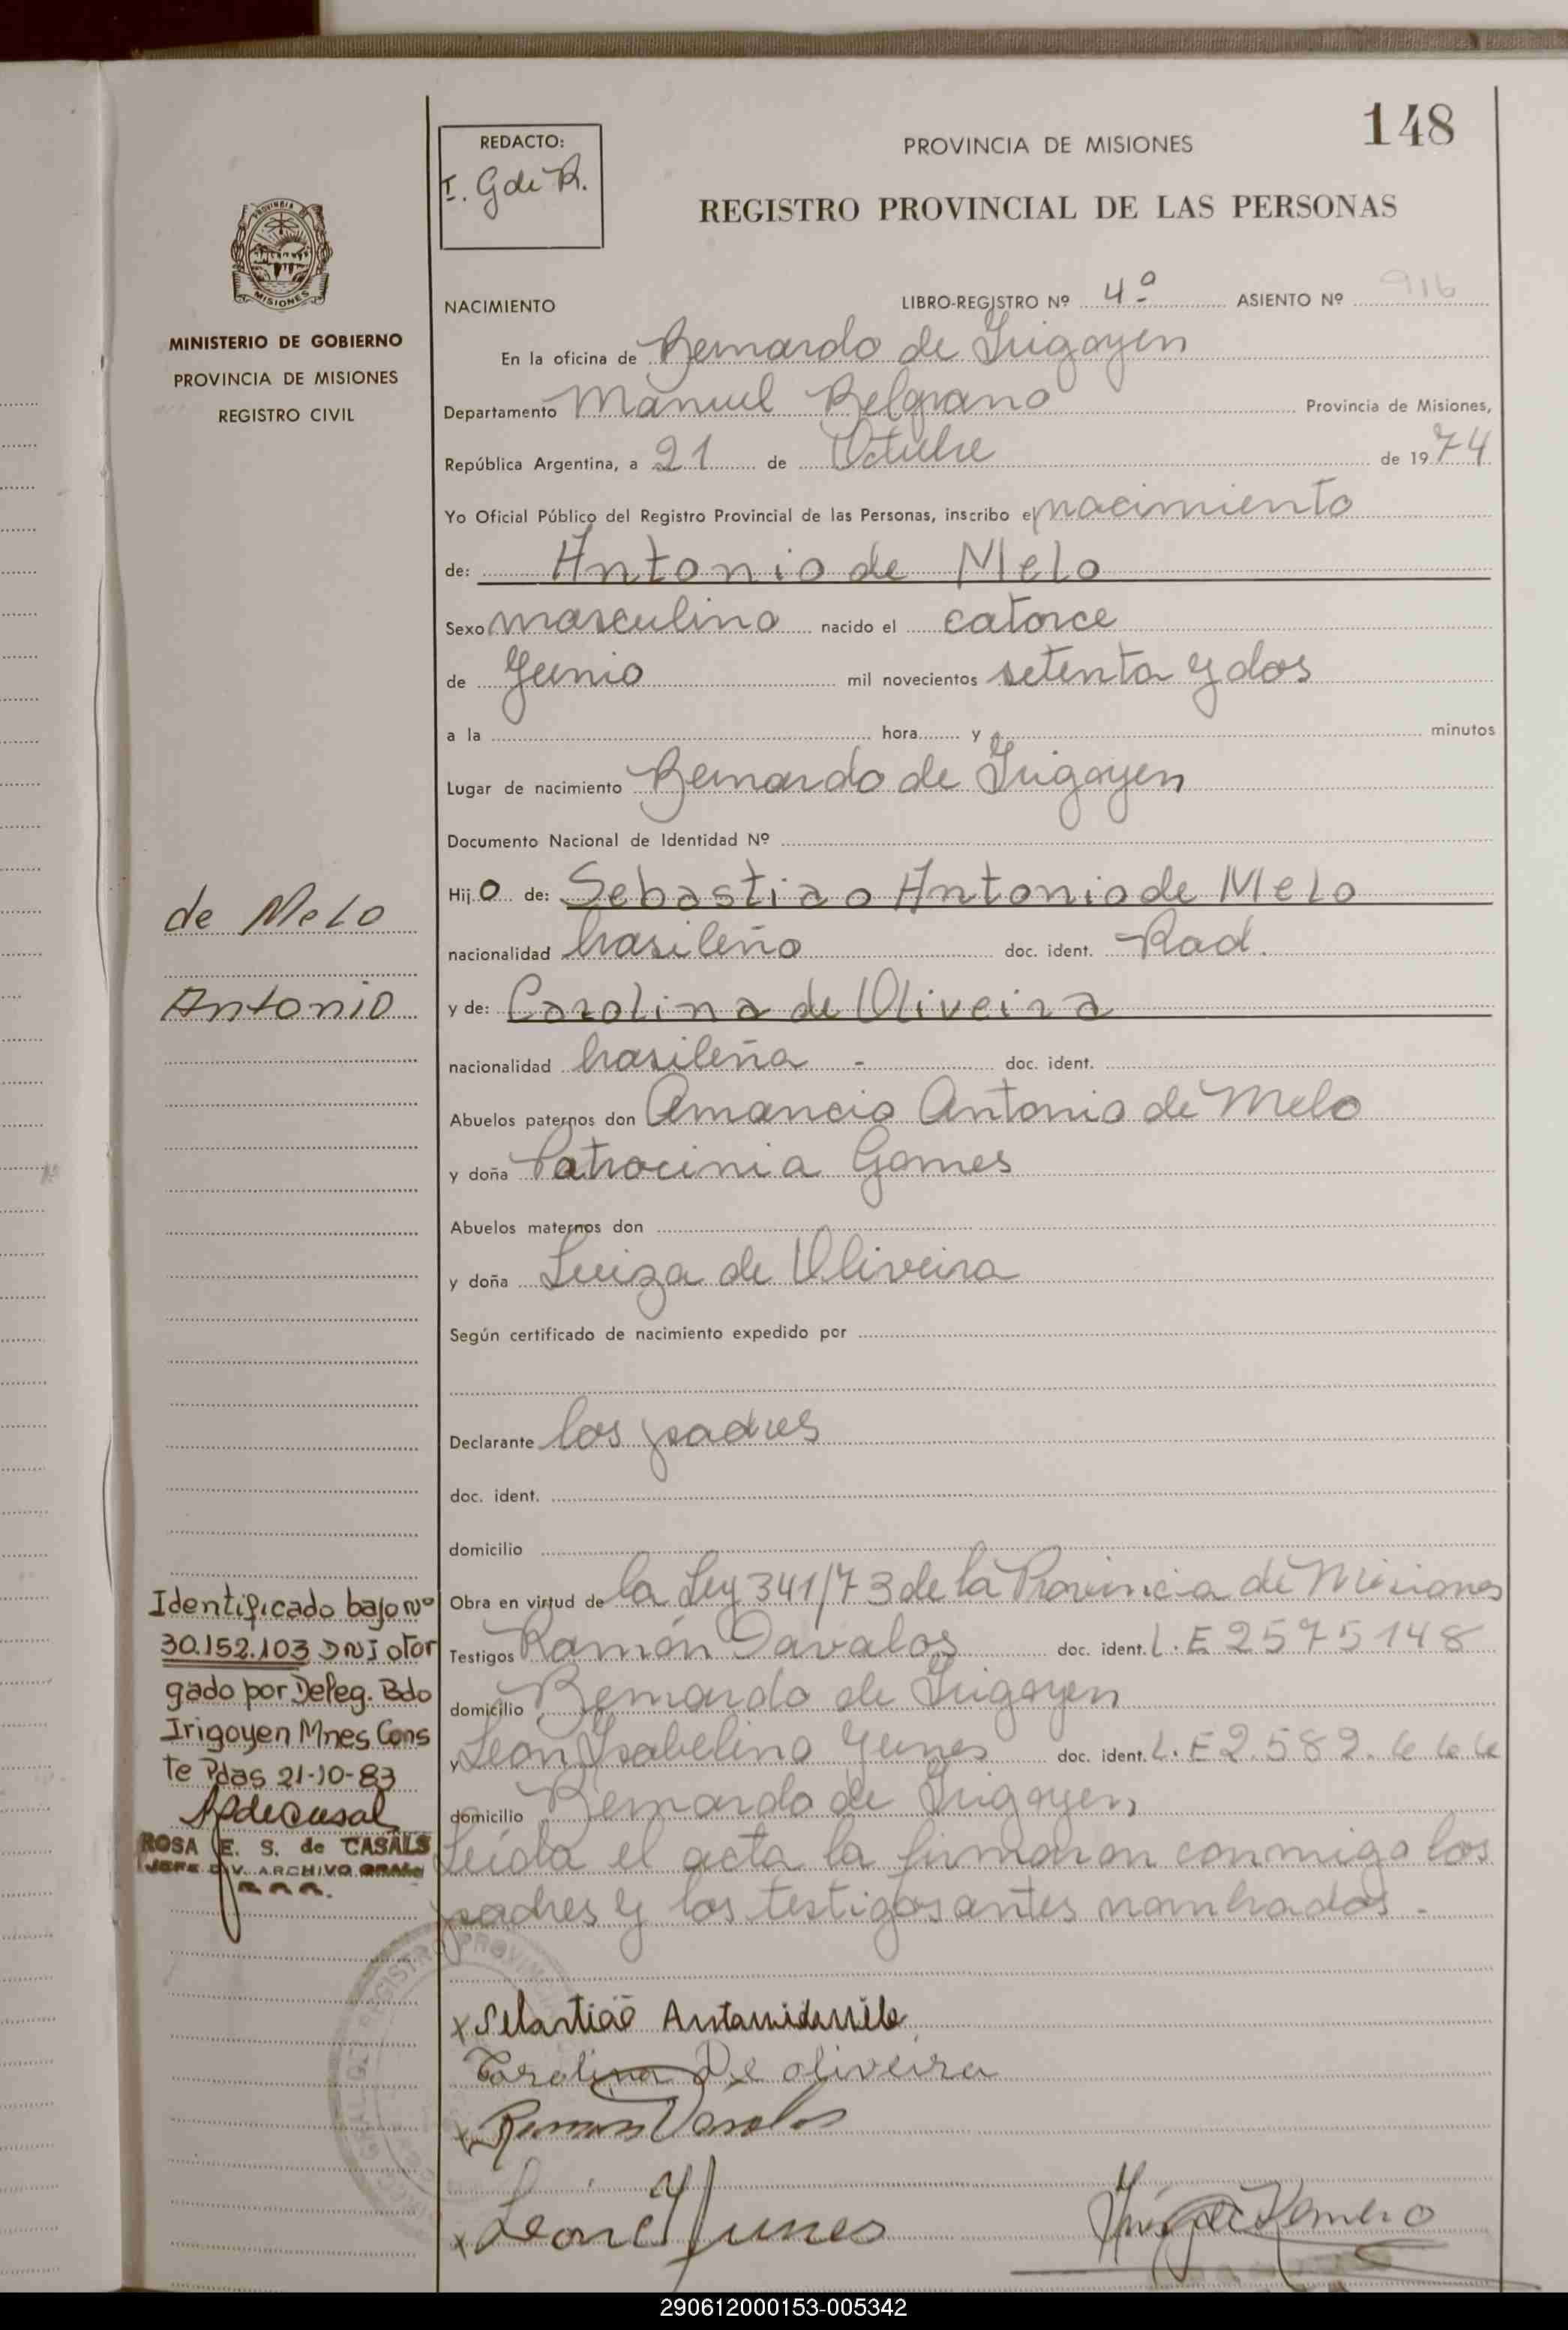 148
REDACTO:
I. G de R.
PROVINCIA DE MISIONES
REGISTRO PROVINCIAL DE LAS PERSONAS
PROVINCIA DE
MISIONES
MINISTERIO DE GOBIERNO
PROVINCIA DE MISIONES
REGISTRO CIVIL
NACIMIENTO LIBRO-REGISTRO Nº 4º ASIENTO Nº 916
En la oficina de Bernardo de Irigoyen
Departamento Manuel Belgrano Provincia de Misiones,
República Argentina, a 21 de Octubre de 1974
Yo Oficial Público del Registro Provincial de las Personas, inscribo el nacimiento
de: Antonio de Melo
Sexo masculino nacido el catorce
de Junio mil novecientos setenta y dos
a la hora y minutos
Lugar de nacimiento Bernardo de Irigoyen
Documento Nacional de Identidad Nº
Hijo de: Sebastiao Antonio de Melo
nacionalidad brasileño doc. ident. Rad.
y de: Carolina de Oliveira
nacionalidad brasileña - doc. ident.
Abuelos paternos don Amancio Antonio de Melo
y doña Patrocinia Gomes
Abuelos maternos don
y doña Luiza de Oliveira
Según certificado de nacimiento expedido por
Declarante los padres
doc. ident.
domicilio
Obra en virtud de la Ley 341/73 de la Provincia de Misiones
Testigos Ramón Davalos doc. ident. L.E 2575148
domicilio Bernardo de Irigoyen
y Leon Ysabelino Yunes doc. ident. L.E 2.582.666
domicilio Bernardo de Irigoyen
Leída el acta la firmaron conmigo los
padres y los testigos antes nombrados.-
de Melo
Antonio
Identificado bajo Nº
30.152.103 DNI otor
gado por Deleg. Bdo
Irigoyen Mnes Cons
te Pdas 21-10-83
ROSA E. S. de CASALS
JEFE DIV. ARCHIVO GRAL
x Sebastiaõ Antonio de Melo
Carolina De oliveira
x Ramon Davalos
x Leon Y Yunes
290612000153-005342